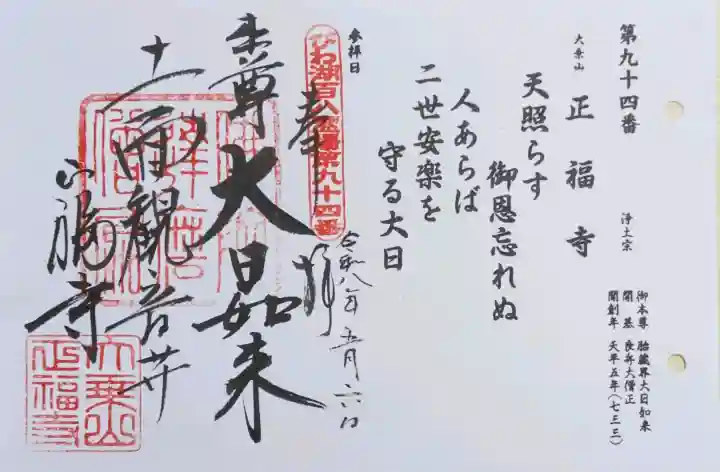 第九十四番
大乗山 正福寺 浄土宗
御本尊 胎蔵界大日如来
開基 良弁大僧正
開創年 天平五年(七三三)
天照らす
御恩忘れぬ
人あらば
二世安楽を
守る大日
参拝日
令和八年五月六日
びわ湖百八霊場第九十四番
奉拝
本尊大日如来
十一面観音廾
正福寺
大乗山
正福寺